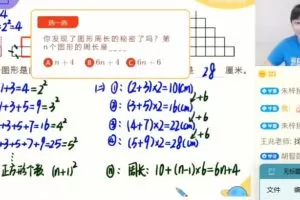 选一选
你发现了图形周长的秘密了吗？第
n个图形的周长是____
A n+4 B 6n+4 C 6n+6
图形是 28 厘米。
1+3=4=2²
1+3+5=9=3²
+3+5+7=16=4²
+3+5+7+9=25=5²
正方形个数 (n+1)²
①: (2+3)×2=10(cm)
②: (3+5)×2=16(cm)
③: (4+7)×2=22(cm)
④: (5+9)×2=28(cm)
+6
+6
+6
ⓝ: 周长: 10+(n-1)×6=6n+4
朱梓
我:
朱梓
王兆老师:
胡智
菜单